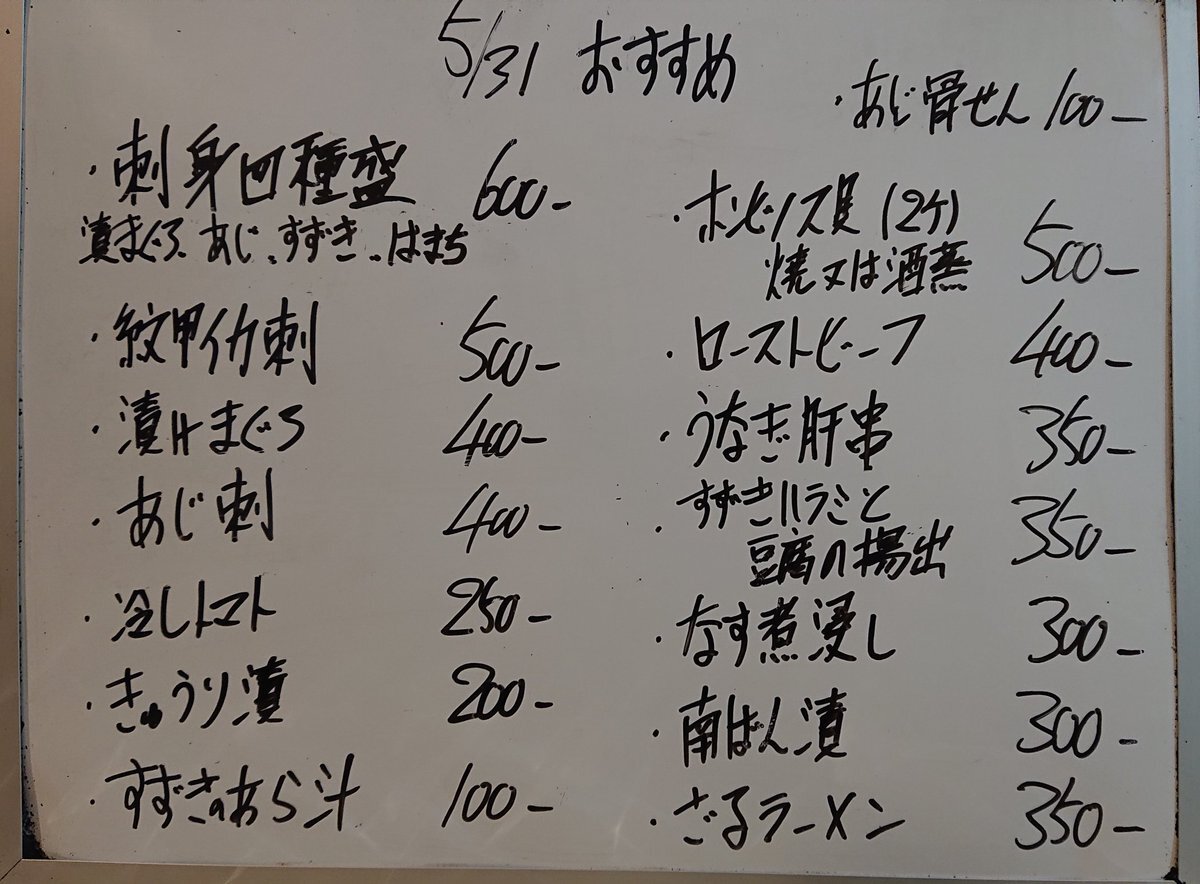 5/31 おすすめ
・刺身四種盛 600-
漬まぐろ、あじ、すずき、はまち
・紋甲イカ刺 500-
・漬けまぐろ 400-
・あじ刺 400-
・冷しトマト 250-
・きゅうり漬 200-
・すずきのあら汁 100-
・あじ骨せん 100-
・ホンビノス貝(2ケ)
焼又は酒蒸 500-
・ローストビーフ 400-
・うなぎ肝串 350-
・すずきハラミと
豆腐の揚出 350-
・なす煮浸し 300-
・南ばん漬 300-
・ざるラーメン 350-